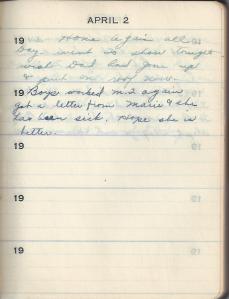 APRIL 2
19 Home again all
day went to show tonight
with Dad had
19 Boys worked m.2 again
got a letter from Marie & she
has been sick. Hope she is
better.
19
19
19